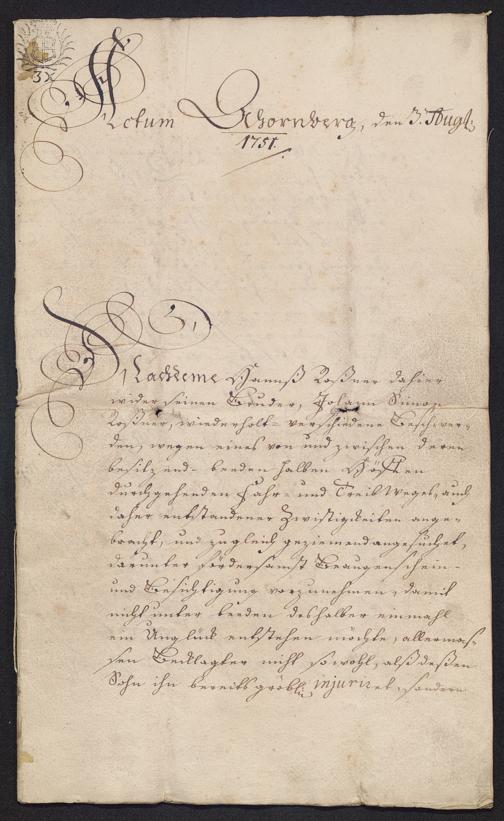 3x
Actum Schornberg, den 3. Augl:
1751.
Nachdeme Hannß Roßner dahier
wider seinen Bruder, Johann Simon
Roßner, wiederholt- verschiedene Beschwer-
den, wegen eines von und zwischen deren
besitzend- beeden halben Höffen
durchgehenden Fahr- und Treib Weges, auch
daher entstandener Zwistigkeiten ange-
bracht, und zugleich geziemend angesuchet,
darunter fördersamst Beaugenschein-
und Besichtigung vorzunehmen, damit
nicht unter beeden deshalber einmahl
ein Unglück entstehen möchte, allermas-
sen Becklagter nicht sowohl, alß deßen
Sohn ihn bereits gröblich injuriret, sondern